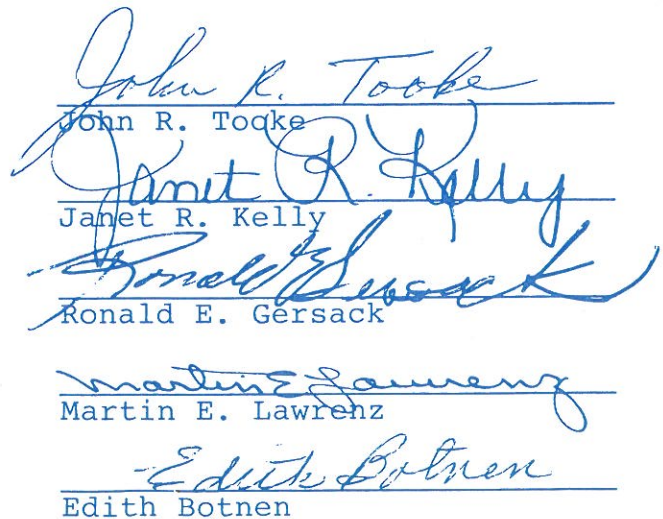 John R. Tooke
John R. Tooke
Janet R. Kelly
Janet R. Kelly
Ronald E Gersack
Ronald E. Gersack
Martin E Lawrenz
Martin E. Lawrenz
Edith Botnen
Edith Botnen